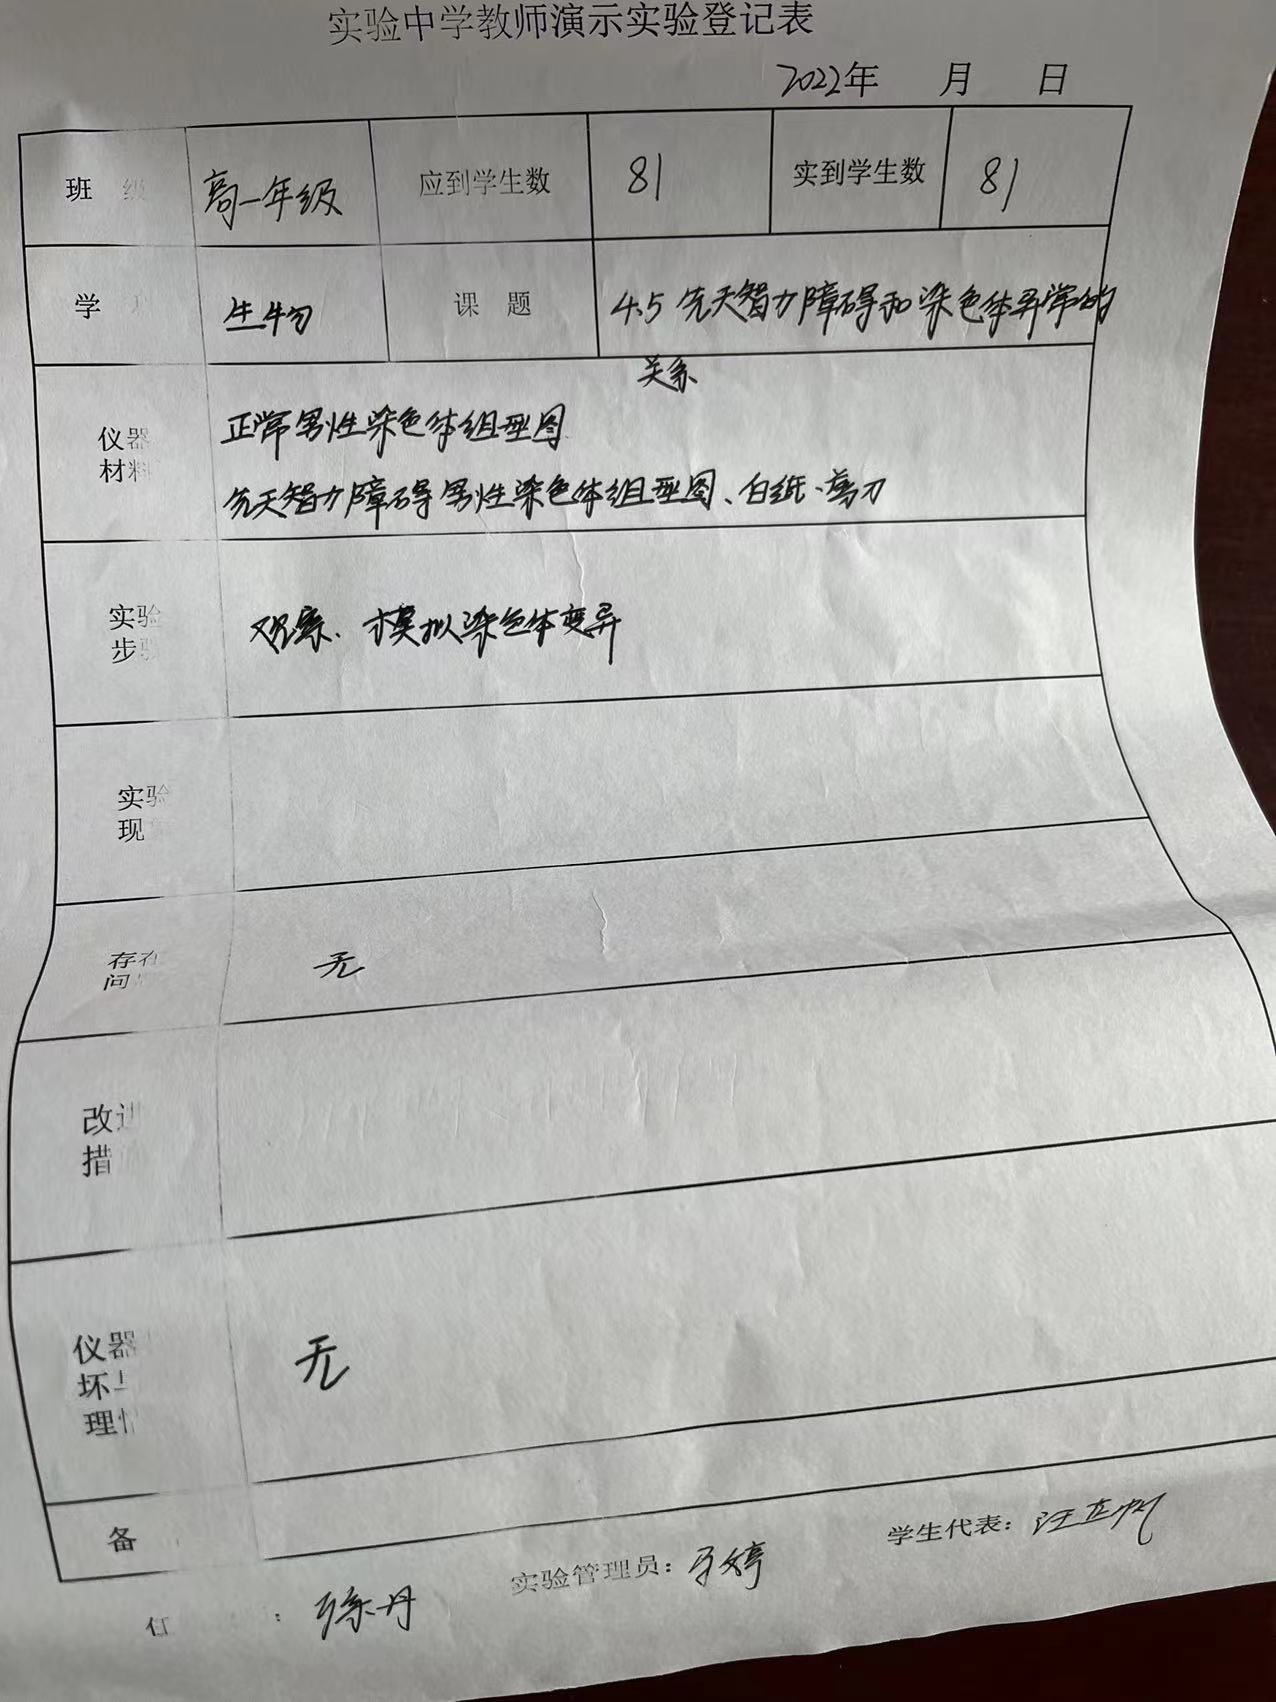 实验中学教师演示实验登记表
2022年 月 日
班 级 高一年级 应到学生数 81 实到学生数 81
学 生物 课 题 4.5 先天智力障碍和染色体异常的
关系
仪器
材料
正常男性染色体组型图
先天智力障碍男性染色体组型图、白纸、剪刀
实验
步骤
观察、模拟染色体变异
实验
现
存在
问
无
改进
措
仪器
坏
理情
无
备
学生代表:
实验管理员:
任 : 徐丹